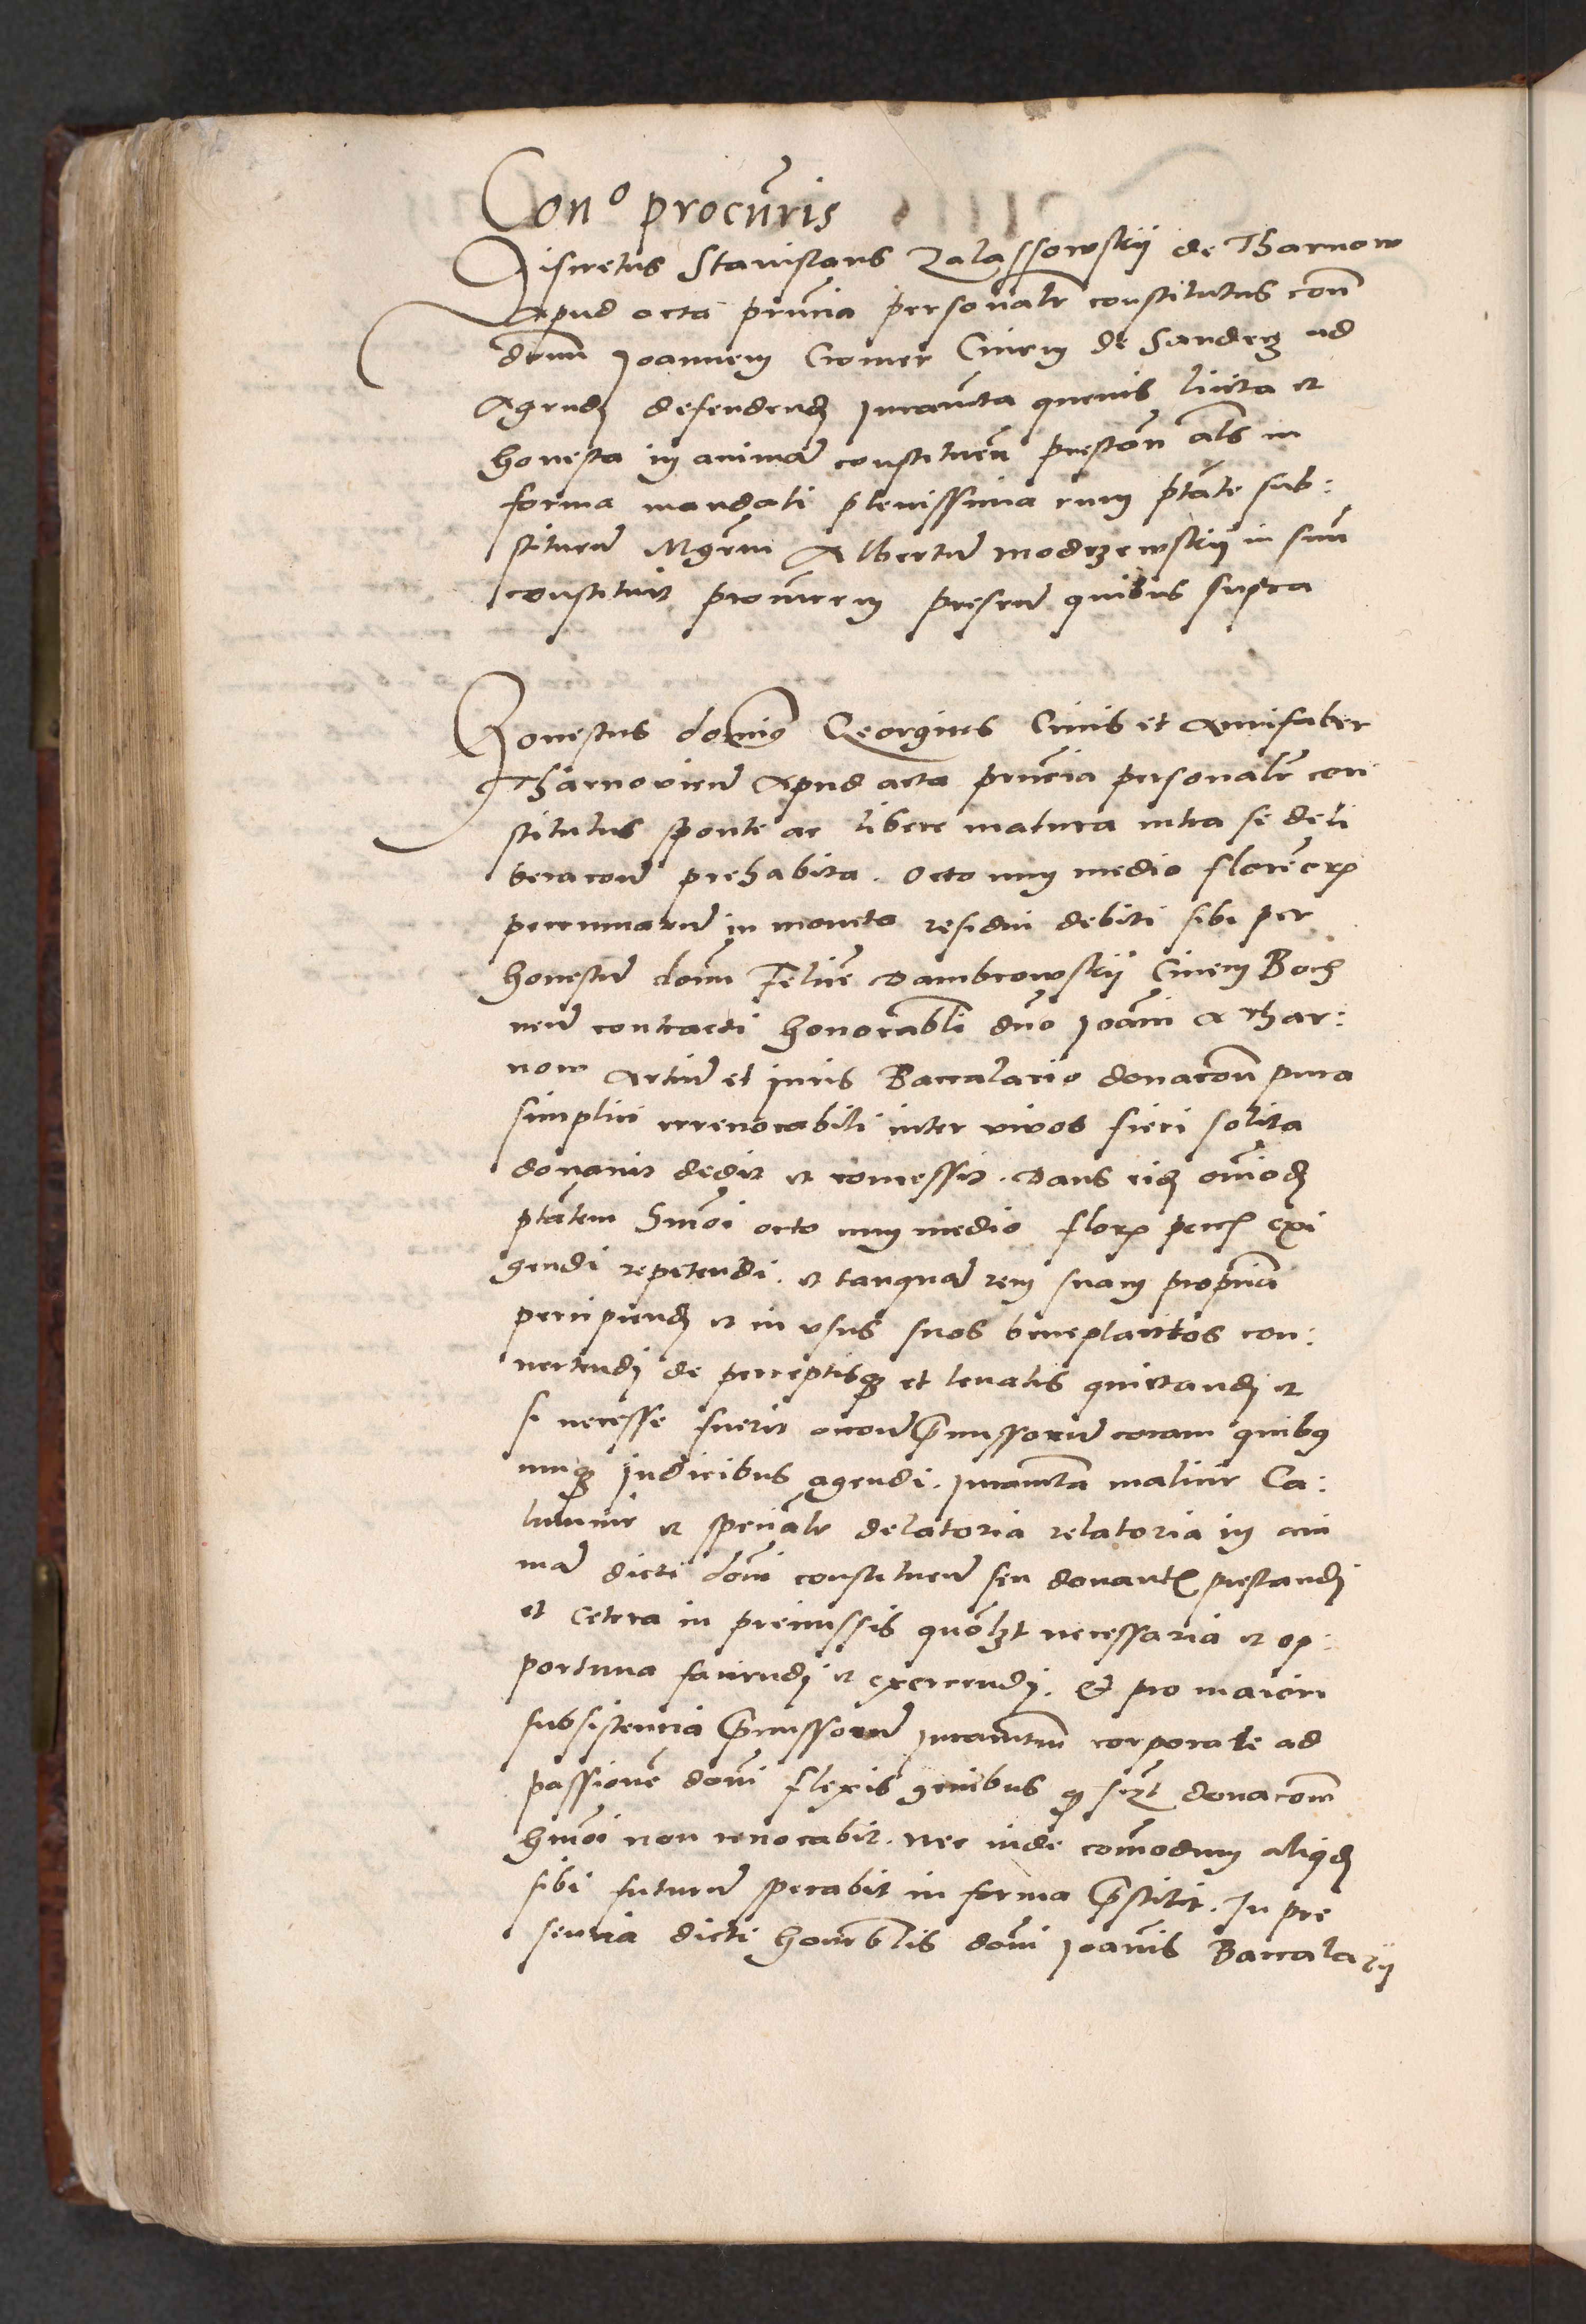 Con⁰ procur̄is
Discretus Stanislaus Zalassowskij de Tharnow
Apud acta pn̄cia personalr̄ constitutus con̄
dnm̄ Joannem Cromer Ciuem de Sandecz ad
Agendꝫ defendendꝫ Juramēta queuis licita et
honesta in animā constituen̄ prestān als in
forma mandati plenissima cum ptāte sub:
stituen̄ Mgrm̄ Albertū Modrzewskij in suū
constituit procurem presen̄ quibus supra
Honestus domin9 Georgius Ciuis et Aurifaber
Tharnouien̄ Apud acta pn̄cia personalr̄ con
stitutus sponte ac libere matura intra se deli
beracon̄e prehabita . Octo cum medio florēorꝝ
pecuniarū in moneta residui debiti sibi per
honestū dom̄ Felicē Dambrowskij Ciuem Boch
nen̄ contracti honorabli dn̄o Joānni a Thar:
now Artiū et Juris Baccalario donacōne pura
simplici irreuocabili inter viuos fieri solita
donauit dedit et concessit . Dans eidꝫ om̄iodꝫ
ptātem hmōi octo cum medio florꝝ pecuꝝ exi
gendi repetendi . et tanquā rem suam propriā
percipiendꝫ et in vsus suos beneplacitos con:
uertendꝫ de perceptisqꝫ et leuatis quietandꝫ et
si necesse fuerit occōe p̄missorū coram quibus
cunqꝫ Judicibus agendi . Juramēta malicie Ca:
lumnie et specialr̄ delatoria relatoria in ani
mā dicti dōni constituen̄ seu donantꝭ prestandꝫ
et cetera in premissis quōlꝫt necessaria et op:
portuna faciendꝫ et exercendꝫ . Et pro maiori
subsistencia p̄missorū Juramētum corporale ad
passionē domī flexis genibus qꝫ scꝫt donacōm
hmōi non reuocabit . nec inde cōmodum aliqdꝫ
sibi futurū sperabit in forma p̄stitit . In pre
sencia dicti honorablis domī Joannis Baccalarij